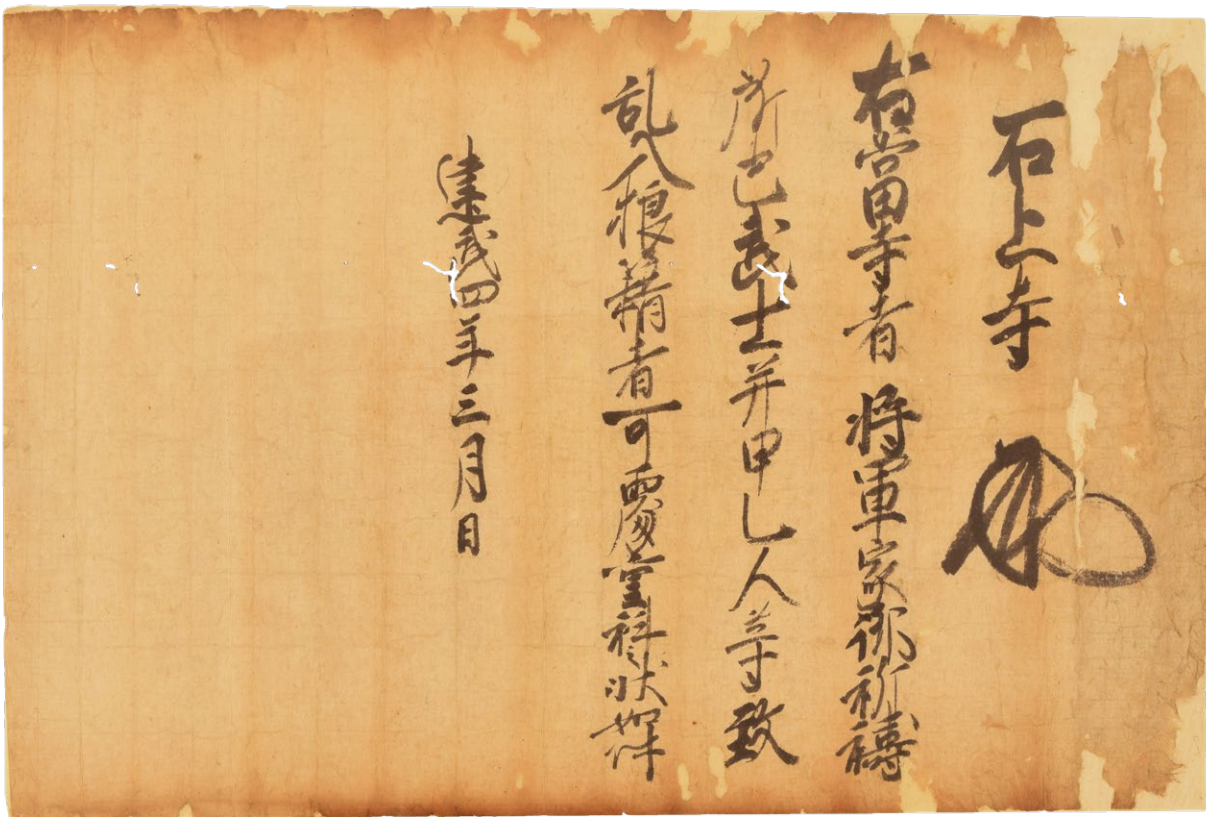 石上寺
右當寺者将軍家御祈禱
所也武士并甲乙人等致
乱入狼藉者可處重科状如件
建武四年三月日